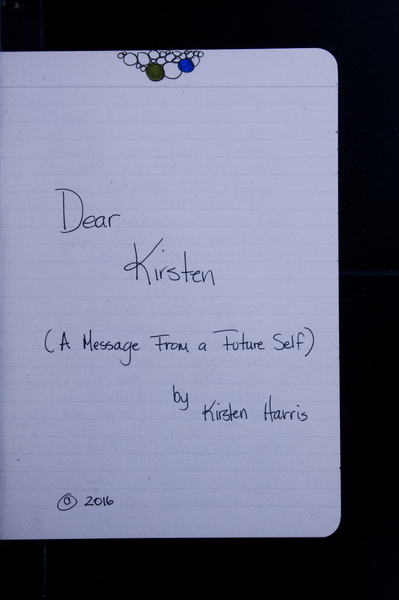 Dear
Kirsten
(A Message From a Future Self)
by
Kirsten Harris
© 2016